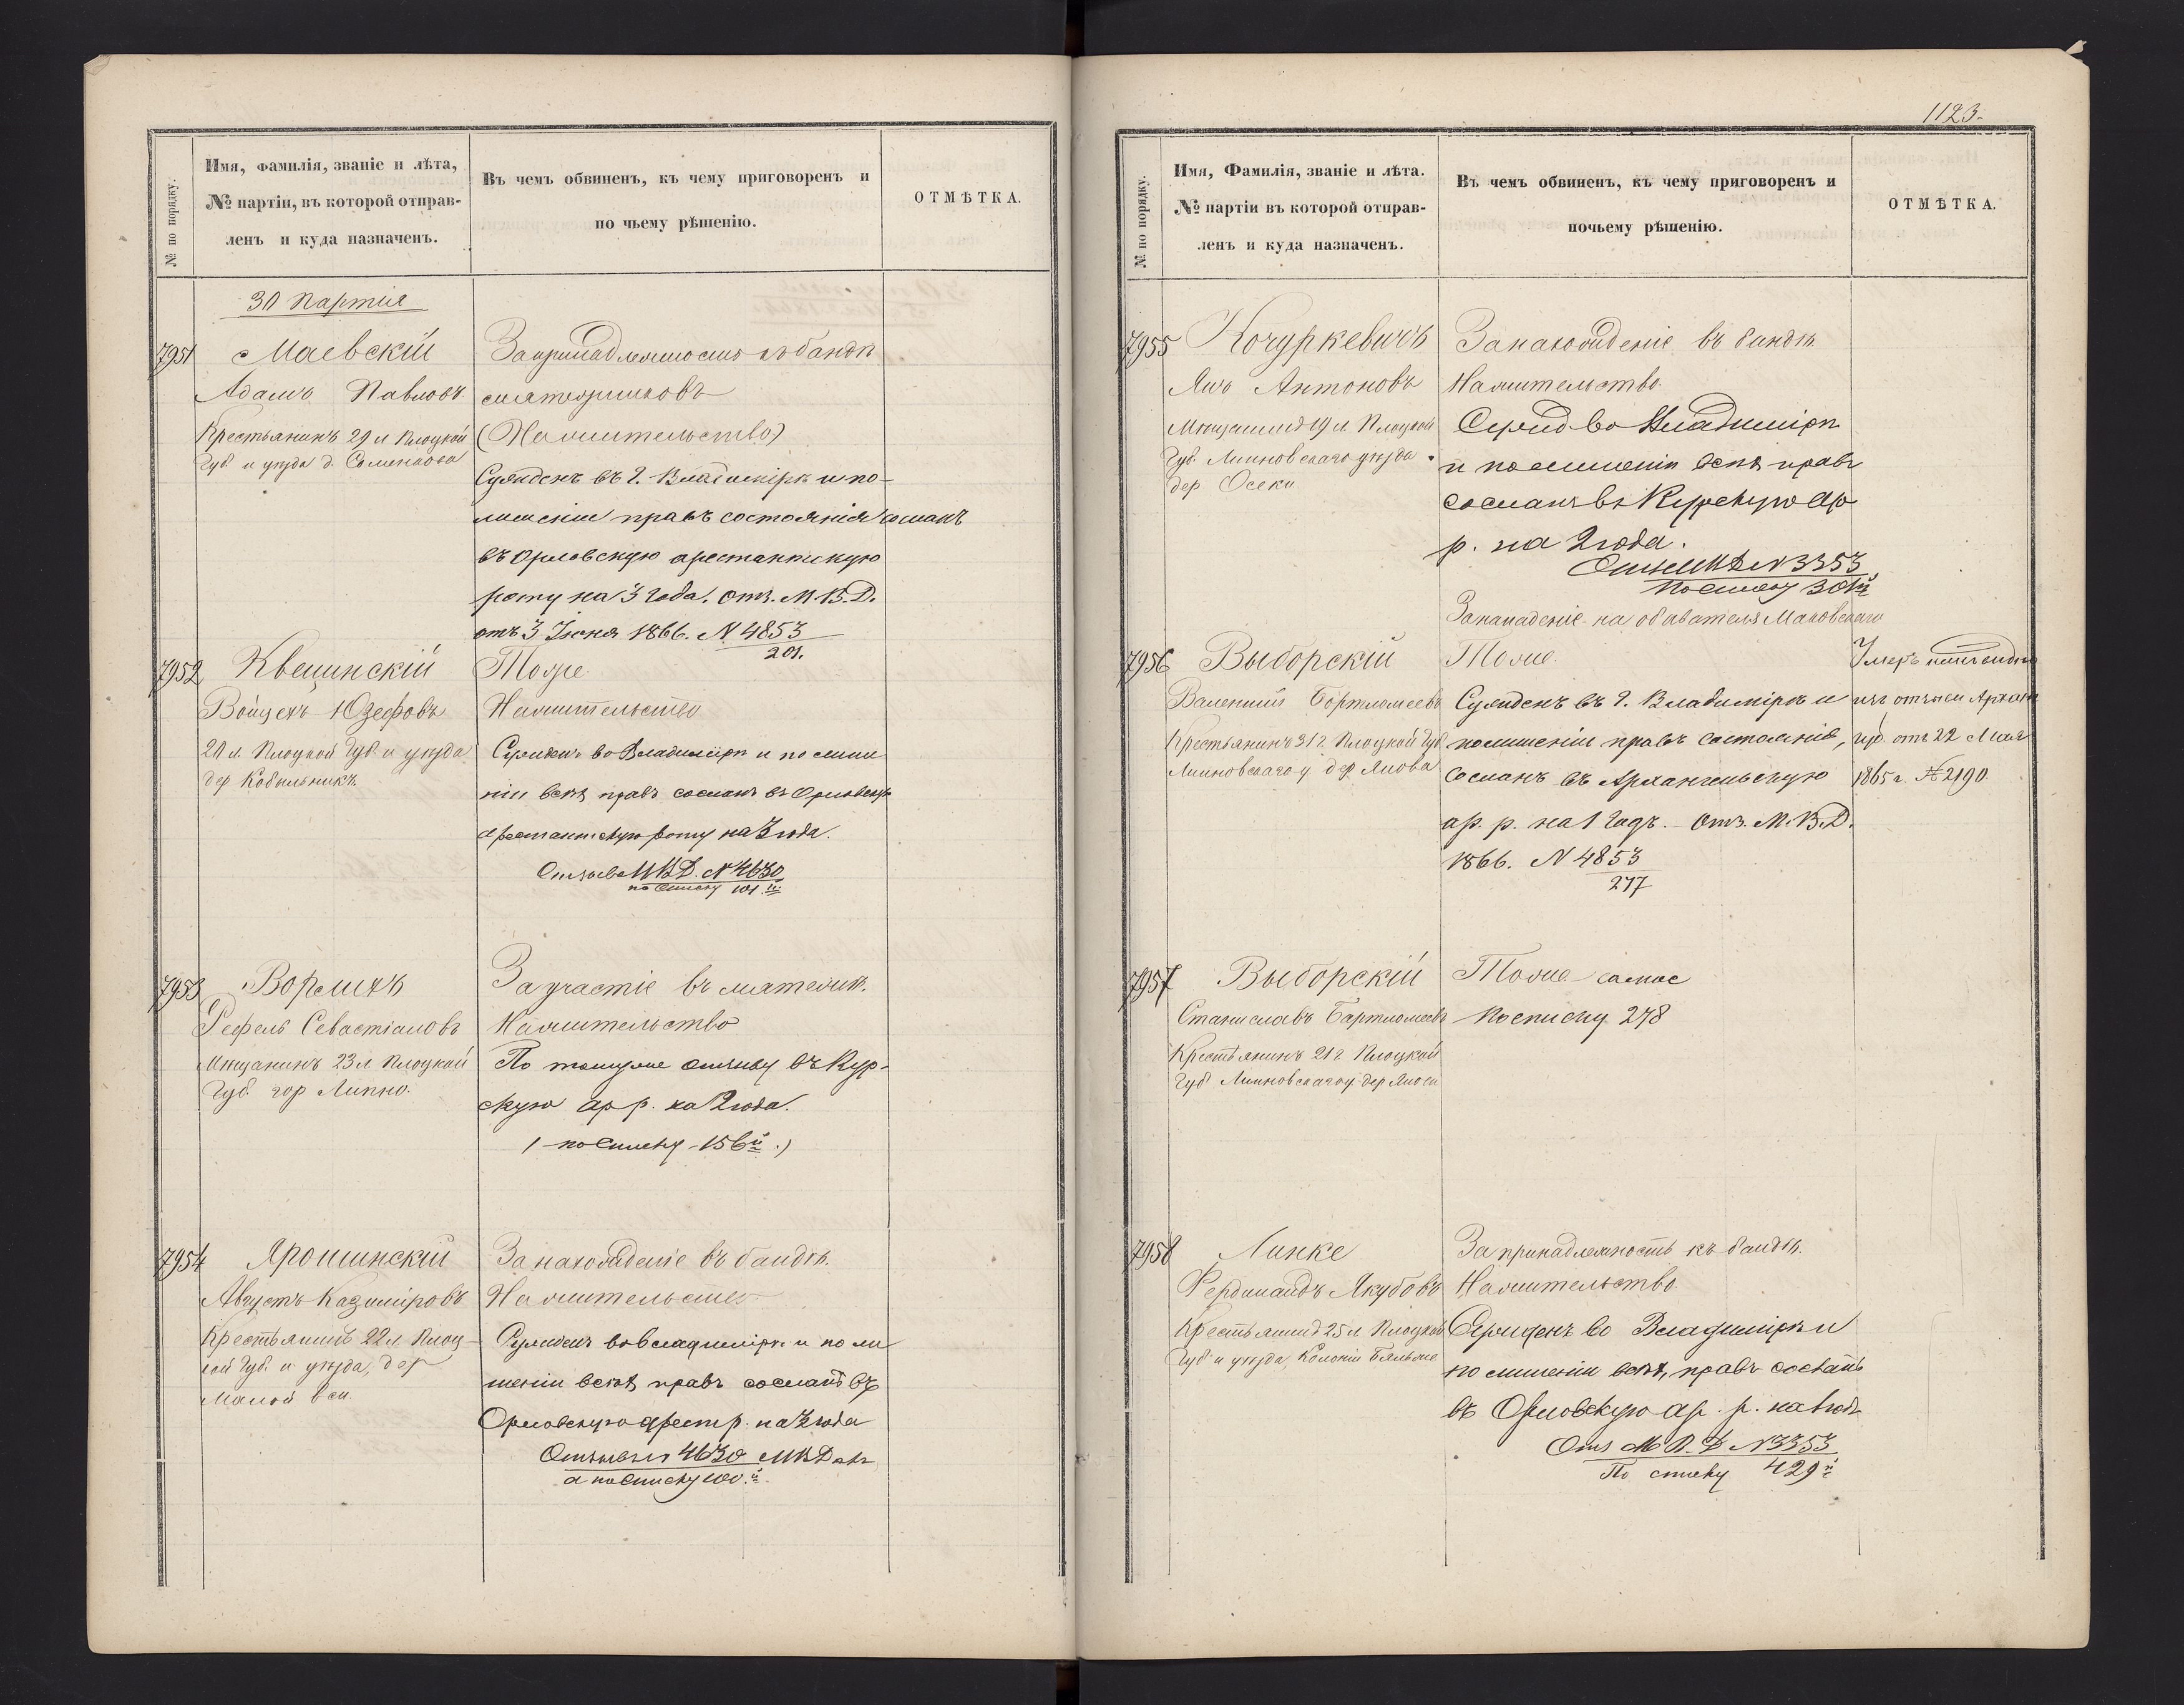 № по порядку.
Имя, фамилія, званіе и лѣта,
№ партіи, въ которой отправ-
ленъ и куда назначенъ.
Въ чемъ обвиненъ, къ чему приговоренъ и
по чьему рѣшенію.
ОТМѢТКА.
30 партія
7951 Маевскій
Адамъ Павловъ
Крестьянинъ 29 л Плоцкой
Губ. и уѣзда д.
За принадлежность къ бандѣ
мятежниковъ
(Намѣстительство)
Сужденъ въ г. Владимірѣ и по-
лишеніи правъ состоянія сосланъ
въ Орловскую арестантскую
роту на 3 года. Отз. М.В.Д.
отъ 3 Іюня 1866. N 4853
201.
7952 Квецинскій
Войцехъ Юзефовъ
20 л. Плоцкой Губ. и уѣзда
дер Кобыльникъ.
Тоже
Сужденъ во Владимірѣ и по лише
ніи всѣхъ правъ сосланъ въ Орловскую
арестантскую роту на 3 года.
Отзывъ МВД. N 4630
по списку 101.й
7953
Севастіановъ
Мѣщанинъ 23 л Плоцкой
Губ. гор Липно.
За участіе въ мятежѣ.
По тому же отзыву въ Кур-
скую ар р. на 2 года.
(по списку 156й.)
7954 Ярошинскій
Августъ Казиміровъ
Крестьянинъ 22 л. Плоц-
кой Губ. и уѣзда, дер
Малой вси.
За нахожденіе въ бандѣ.
Сужденъ во Владимірѣ и по ли
шеніи всѣхъ правъ сосланъ въ
Орловскую арест р. на 3 года
Отзывъ N 4630 МВД
а по списку 100.й
1123.
№ по порядку.
Имя, Фамилія, званіе и лѣта.
№ партіи въ которой отправ-
ленъ и куда назначенъ.
Въ чемъ обвиненъ, къ чему приговоренъ и
почьему рѣшенію.
ОТМѢТКА.
7955 Кочуркевичъ
Янъ Антоновъ
Мѣщанинъ 19 л. Плоцкой
Губ. Липновскаго уѣзда
дер Осеки
За нахожденіе въ бандѣ
Сужд во Владимірѣ
и по лишеніи всѣхъ правъ
сосланъ въ Курскую ар
р. на 2 года.
Отз МВД N 3353
по списку
За нападеніе на обывателя Маковскаго
7956 Выборскій
Валентій Бортломеевъ
Крестьянинъ 31 г. Плоцкой Губ
Липновскаго у дер Янова
Тоже.
Сужденъ въ г. Владимірѣ и
полишеніи правъ состоянія,
сосланъ въ Архангельскую
ар. р. на 1 годъ. - Отз. М.В.Д.
1866. N 4853
277
Умеръ
губ. отъ 22 Мая
1865 г. № 2190
7957 Выборскій
Станиславъ Бартломеевъ
Крестьянинъ 21 г. Плоцкой
Губ. Липновскаго у дер
Тоже самое
По списку 278
7958 Линке
Фердинандъ Якубовъ
Крестьянинъ 25 л Плоцкой
Губ и уѣзда, Колоніи
За принадлежность къ бандѣ.
Сужденъ во Владимірѣ и
по лишеніи всѣхъ правъ сосланъ
въ Орловскую ар. р.
Отз М В. Д N 3353
По списку 429й